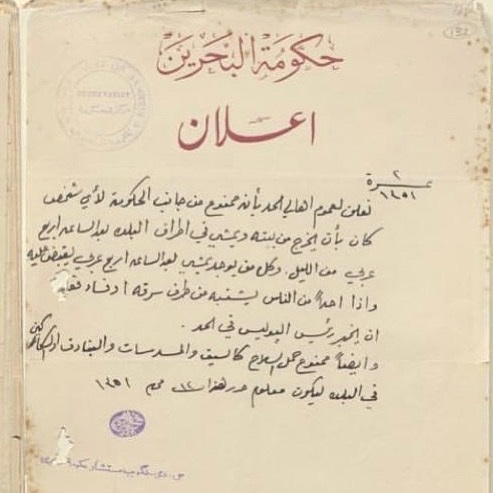 ١٣٢
حكومة البحرين
اعلان
نمرة ٢
١٣٥١
نعلن لعموم اهالي الحد بأنه ممنوع من جانب الحكومة لأي شخص
كان بأن يخرج من بيته ويمشي في اطراف البلده بعد الساعه اربع
عربي من الليل. وكل من يوجد يمشي بعد الساعه اربع عربي يقبض عليه
واذا احداً من الناس يشتبه من طرف سرقه او فساد فعليه
ان يخبر رئيس البوليس في الحد.
وايضاً ممنوع حمل السلاح كالسيف والمسدسات والبنادق او السكاكين
في البلده ليكون معلوم حرر محرم ١٣٥١
مستشار حكومة البحرين